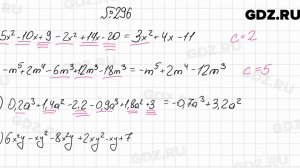 №296
GDZ.RU
5x² - 10x + 9 - 2x² + 14x - 20 = 3x² + 4x - 11 c = 2
-m⁵ + 2m⁴ - 6m³ + 12m³ - 18m³ = -m⁵ + 2m⁴ - 12m³ c = 5
) 0,2a³ + 1,4a² - 2,2 - 0,9a³ + 1,8a² + 3 = -0,7a³ + 3,2a²
) 6x²y - xy² - 8x²y + 2xy² - xy + 7
GDZ.RU